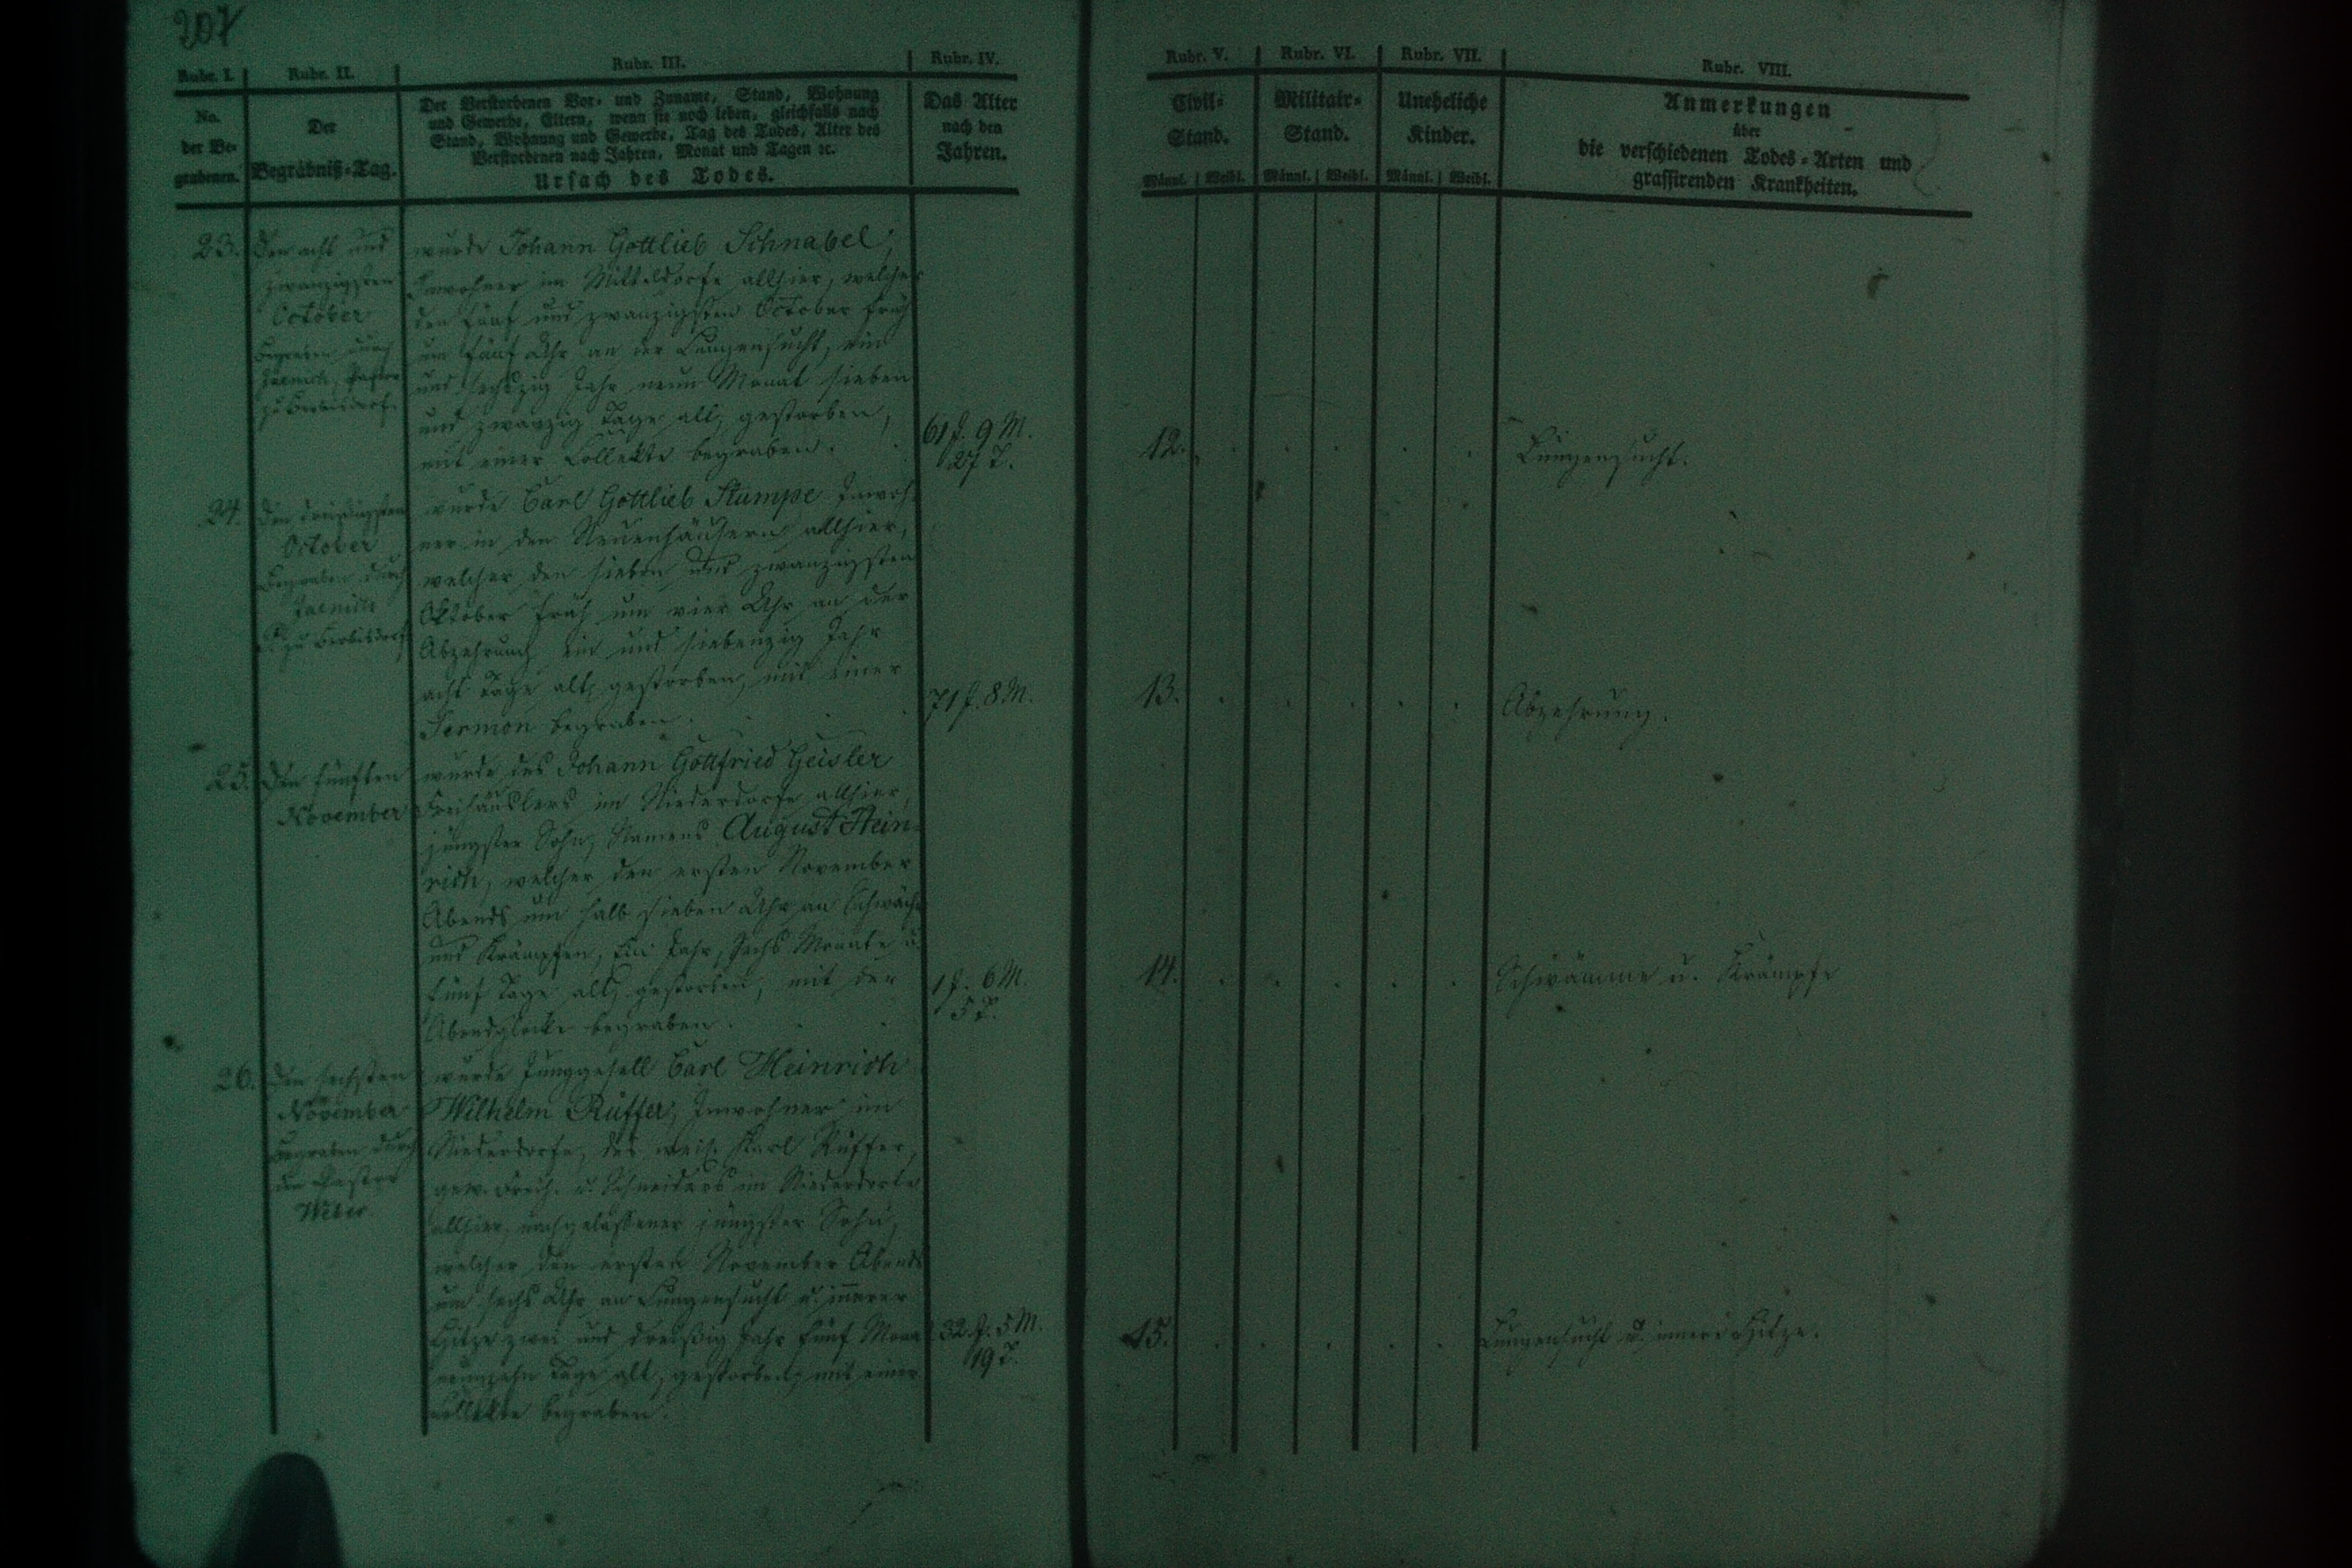 207
Rubr. I.
No.
der Be-
grabenen.
Rubr. II.
Der
Begräbniß-Tag.
Rubr. III.
Der Verstorbenen Vor- und Zuname, Stand, Wohnung
und Gewerbe, Eltern, wenn sie noch leben, gleichfalls nach
Stand, Wohnung und Gewerbe, Tag des Todes, Alter des
Verstorbenen nach Jahren, Monat und Tagen ec.
Ursach des Todes.
Rubr. IV.
Das Alter
nach den
Jahren.
Rubr. V.
Civil-
Stand.
Männl. Weibl.
Rubr. VI.
Militair-
Stand.
Männl. Weibl.
Rubr. VII.
Uneheliche
Kinder.
Männl. Weibl.
Rubr. VIII.
Anmerkungen
über
die verschiedenen Todes-Arten und
grassirenden Krankheiten.
23.
Den acht und
zwanzigsten
October
Begraben durch
Jaenich, Pastor
zu Berbisdorf.
wurde Johann Gottlieb Schnabel,
Inwohner im Mitteldorfe allhier, welcher
den fünf und zwanzigsten October früh
um fünf Uhr an der Lungensucht, ein
und sechszig Jahr neun Monat sieben
und zwanzig Tage alt, gestorben,
mit einer Collekte begraben.
61 J. 9 M.
27 T.
12.
Lungensucht.
24.
Den dreißigsten
October
Begraben durch
Jaenich
P. zu Berbisdorf
wurde Carl Gottlieb Stumpe Inwoh-
ner in den Neuenhäusern allhier,
welcher den sieben und zwanzigsten
Oktober früh um vier Uhr an der
Abzehrung ein und siebenzig Jahr
acht Tage alt, gestorben, mit einer
Sermon begraben.
71 J. 8 M.
13.
Abzehrung.
25.
Den fünften
November
wurde des Johann Gottfried Geisler
Freihäuslers im Niederdorfe allhier,
jüngster Sohn, Namens August Hein-
rich, welcher den ersten November
Abends um halb sieben Uhr an
und Krämpfen, Ein Jahr, sechs Monate u.
fünf Tage alt, gestorben, mit der
Abendglocke begraben.
1 J. 6 M.
5 T.
14.
Schwämme u. Krämpfe
26.
Den sechsten
November
Begraben durch
den Pastor
Weber.
wurde Junggesell Carl Heinrich
Wilhelm Rüffer, Inwohner im
Niederdorfe, des weil. Karl Rüffer,
gew. Freih. u. Schneiders im Niederdorfe
allhier, nachgelassener jüngster Sohn,
welcher den ersten November Abends
um sechs Uhr an Lungensucht u. innerer
Hitze zwei und dreißig Jahr fünf Monat
neunzehn Tage alt, gestorben, mit einer
Collekte begraben.
32 J. 5 M.
19 T.
15.
Lungensucht u. innere Hitze.